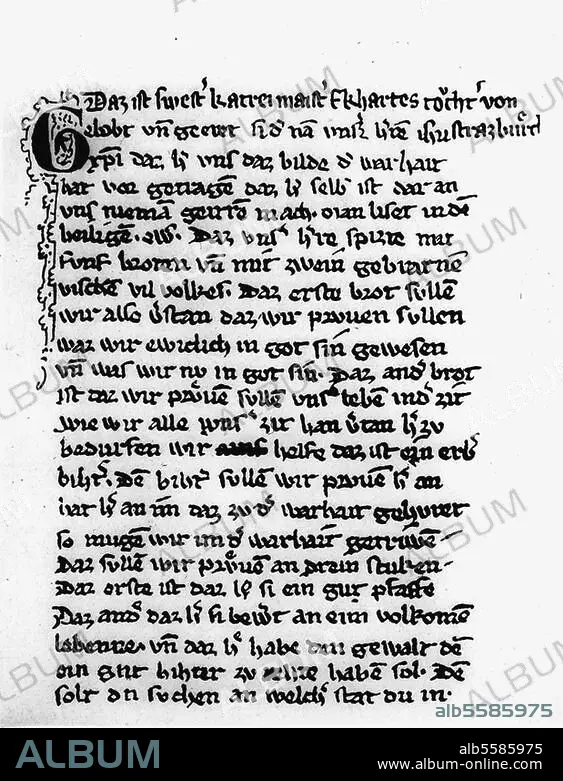 Daz ist swest' katrei maist' Ekhartes tŏcht' von
Gelobt vn̄ geert si d' nā vnsˢ h're ihū
xp̄i daz h' vns daz bilde d' warhait
hat vor getragē daz h' selb' ist dar an
vns niemā geirrē mach. Man liset in dē
heiligē. ew. Daz vns' h're spizte mit
funf broten vn̄ mit zwein gebratnē
vischē vil volkes. Daz erste brot sullē
wir also v'stan daz wir prvuen svllen
waz wir ewiclich in got sin̄ gewesen
vn̄ was wir nv in got sin̄. Daz and' brot
ist daz wir prv̊uē sullē vns' lebē in d' zit
wie wir alle vns' zit han v'tan h' zv
bedurfen wir helfe daz ist ein erb'
biht'. Dē biht' sullē wir prvuē h' an
hat h' an im daz zv d' warhait gehoret
so mugē wir im d' warhait getrwē
Daz sullē wir prv̊uē an drein stuken
Daz erste ist daz h' si ein gut pfaffe
Daz and' daz h' si bew't an eim volkomē
lebenne vn̄ daz h' habe den gewalt dē
ein gut bihter zv rehte habē sol. Dē
solt du suchen an welch' stat du in
ALBUM
alb5585975
ALBUM
alb5585975
www.album-online.com